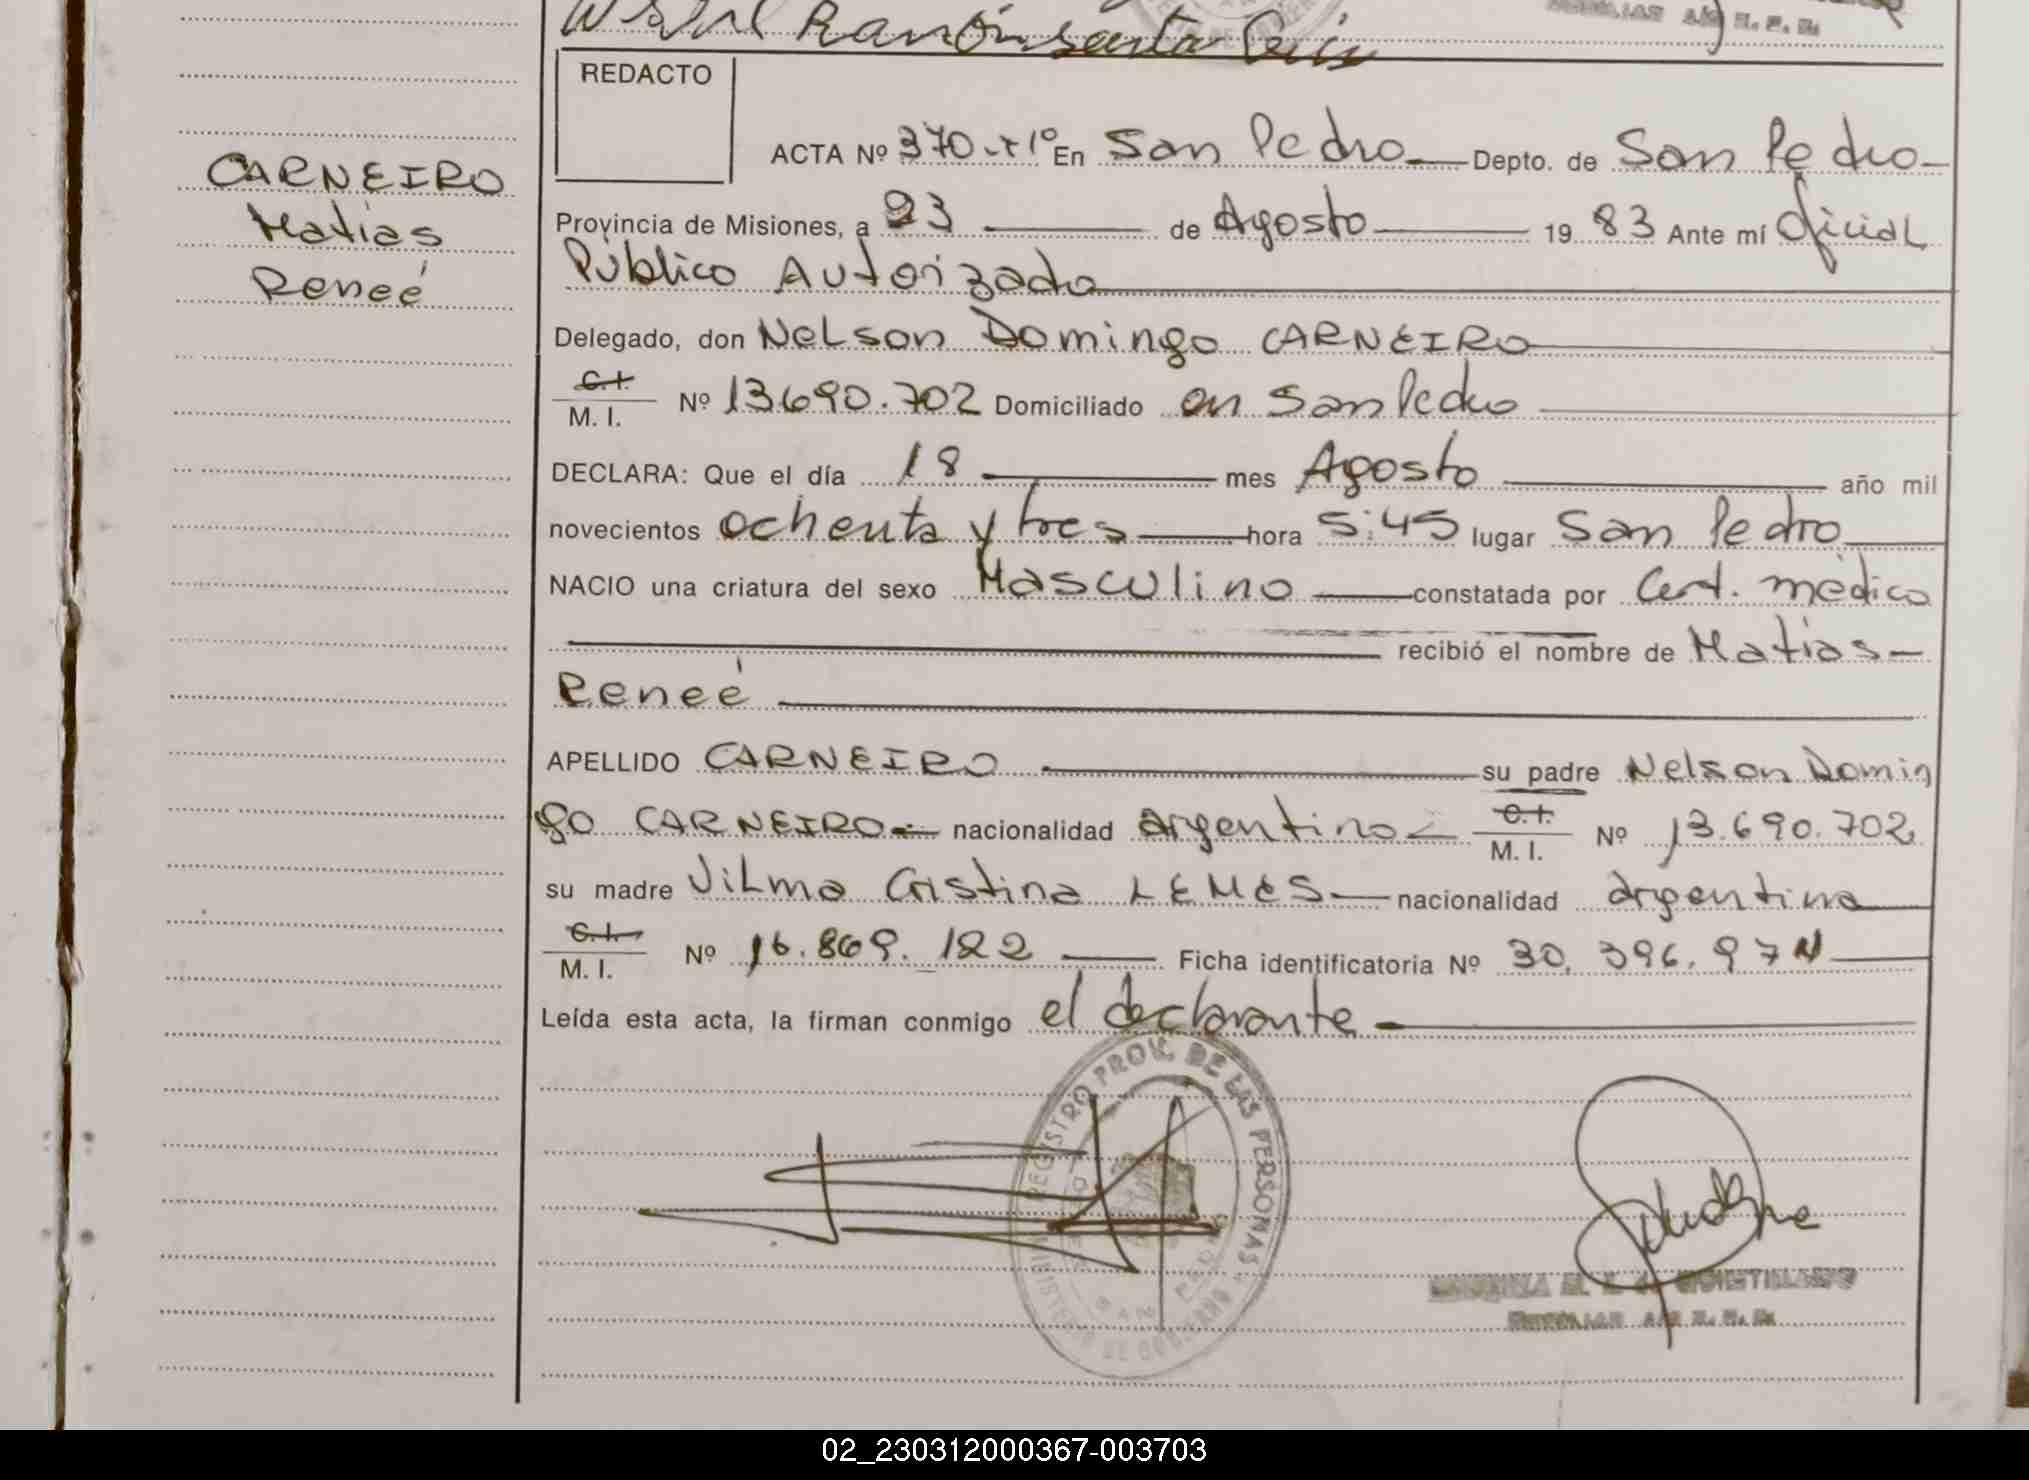 Ramón Santa Cruz
REDACTO
ACTA Nº 370-T1º En San Pedro Depto. de San Pedro
CARNEIRO
Matías
Reneé
Provincia de Misiones, a 23 de Agosto 19 83 Ante mí Oficial
Público Autorizado
Delegado, don Nelson Domingo CARNEIRO
C.I.
M. I. Nº 13690.702 Domiciliado en San Pedro
DECLARA: Que el día 18 mes Agosto año mil
novecientos ochenta y tres hora 5:45 lugar San Pedro
NACIO una criatura del sexo Masculino constatada por Cert. médico
recibió el nombre de Matías
Reneé
APELLIDO CARNEIRO su padre Nelson Domin
go CARNEIRO nacionalidad argentino C.I. M. I. Nº 13.690.702
su madre Vilma Cristina LEMES nacionalidad argentina
C.I.
M. I. Nº 16.869.122 Ficha identificatoria Nº 30.396.974
Leída esta acta, la firman conmigo el declarante
REGISTRO PROV. DE LAS PERSONAS
MINISTERIO DE GOBIERNO
SAN PEDRO
02_230312000367-003703